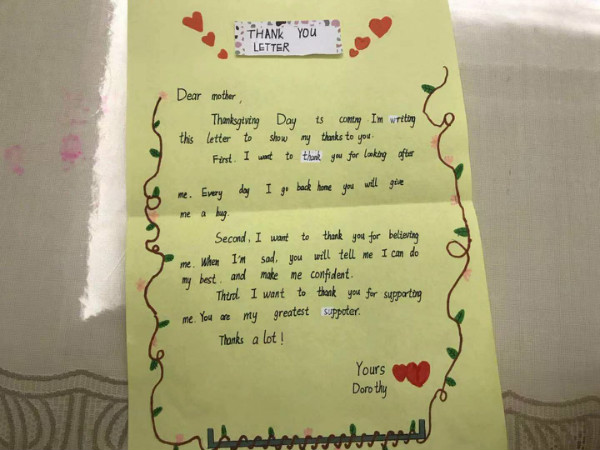 THANK YOU
LETTER
Dear mother,
Thanksgiving Day is coming. I'm writing
this letter to show my thanks to you.
First. I want to thank you for looking after
me. Every day I go back home you will give
me a hug.
Second, I want to thank you for believing
me. When I'm sad, you will tell me I can do
my best. and make me confident.
Third. I want to thank you for supporting
me. You are my greatest suppoter.
Thanks a lot!
Yours
Dorothy